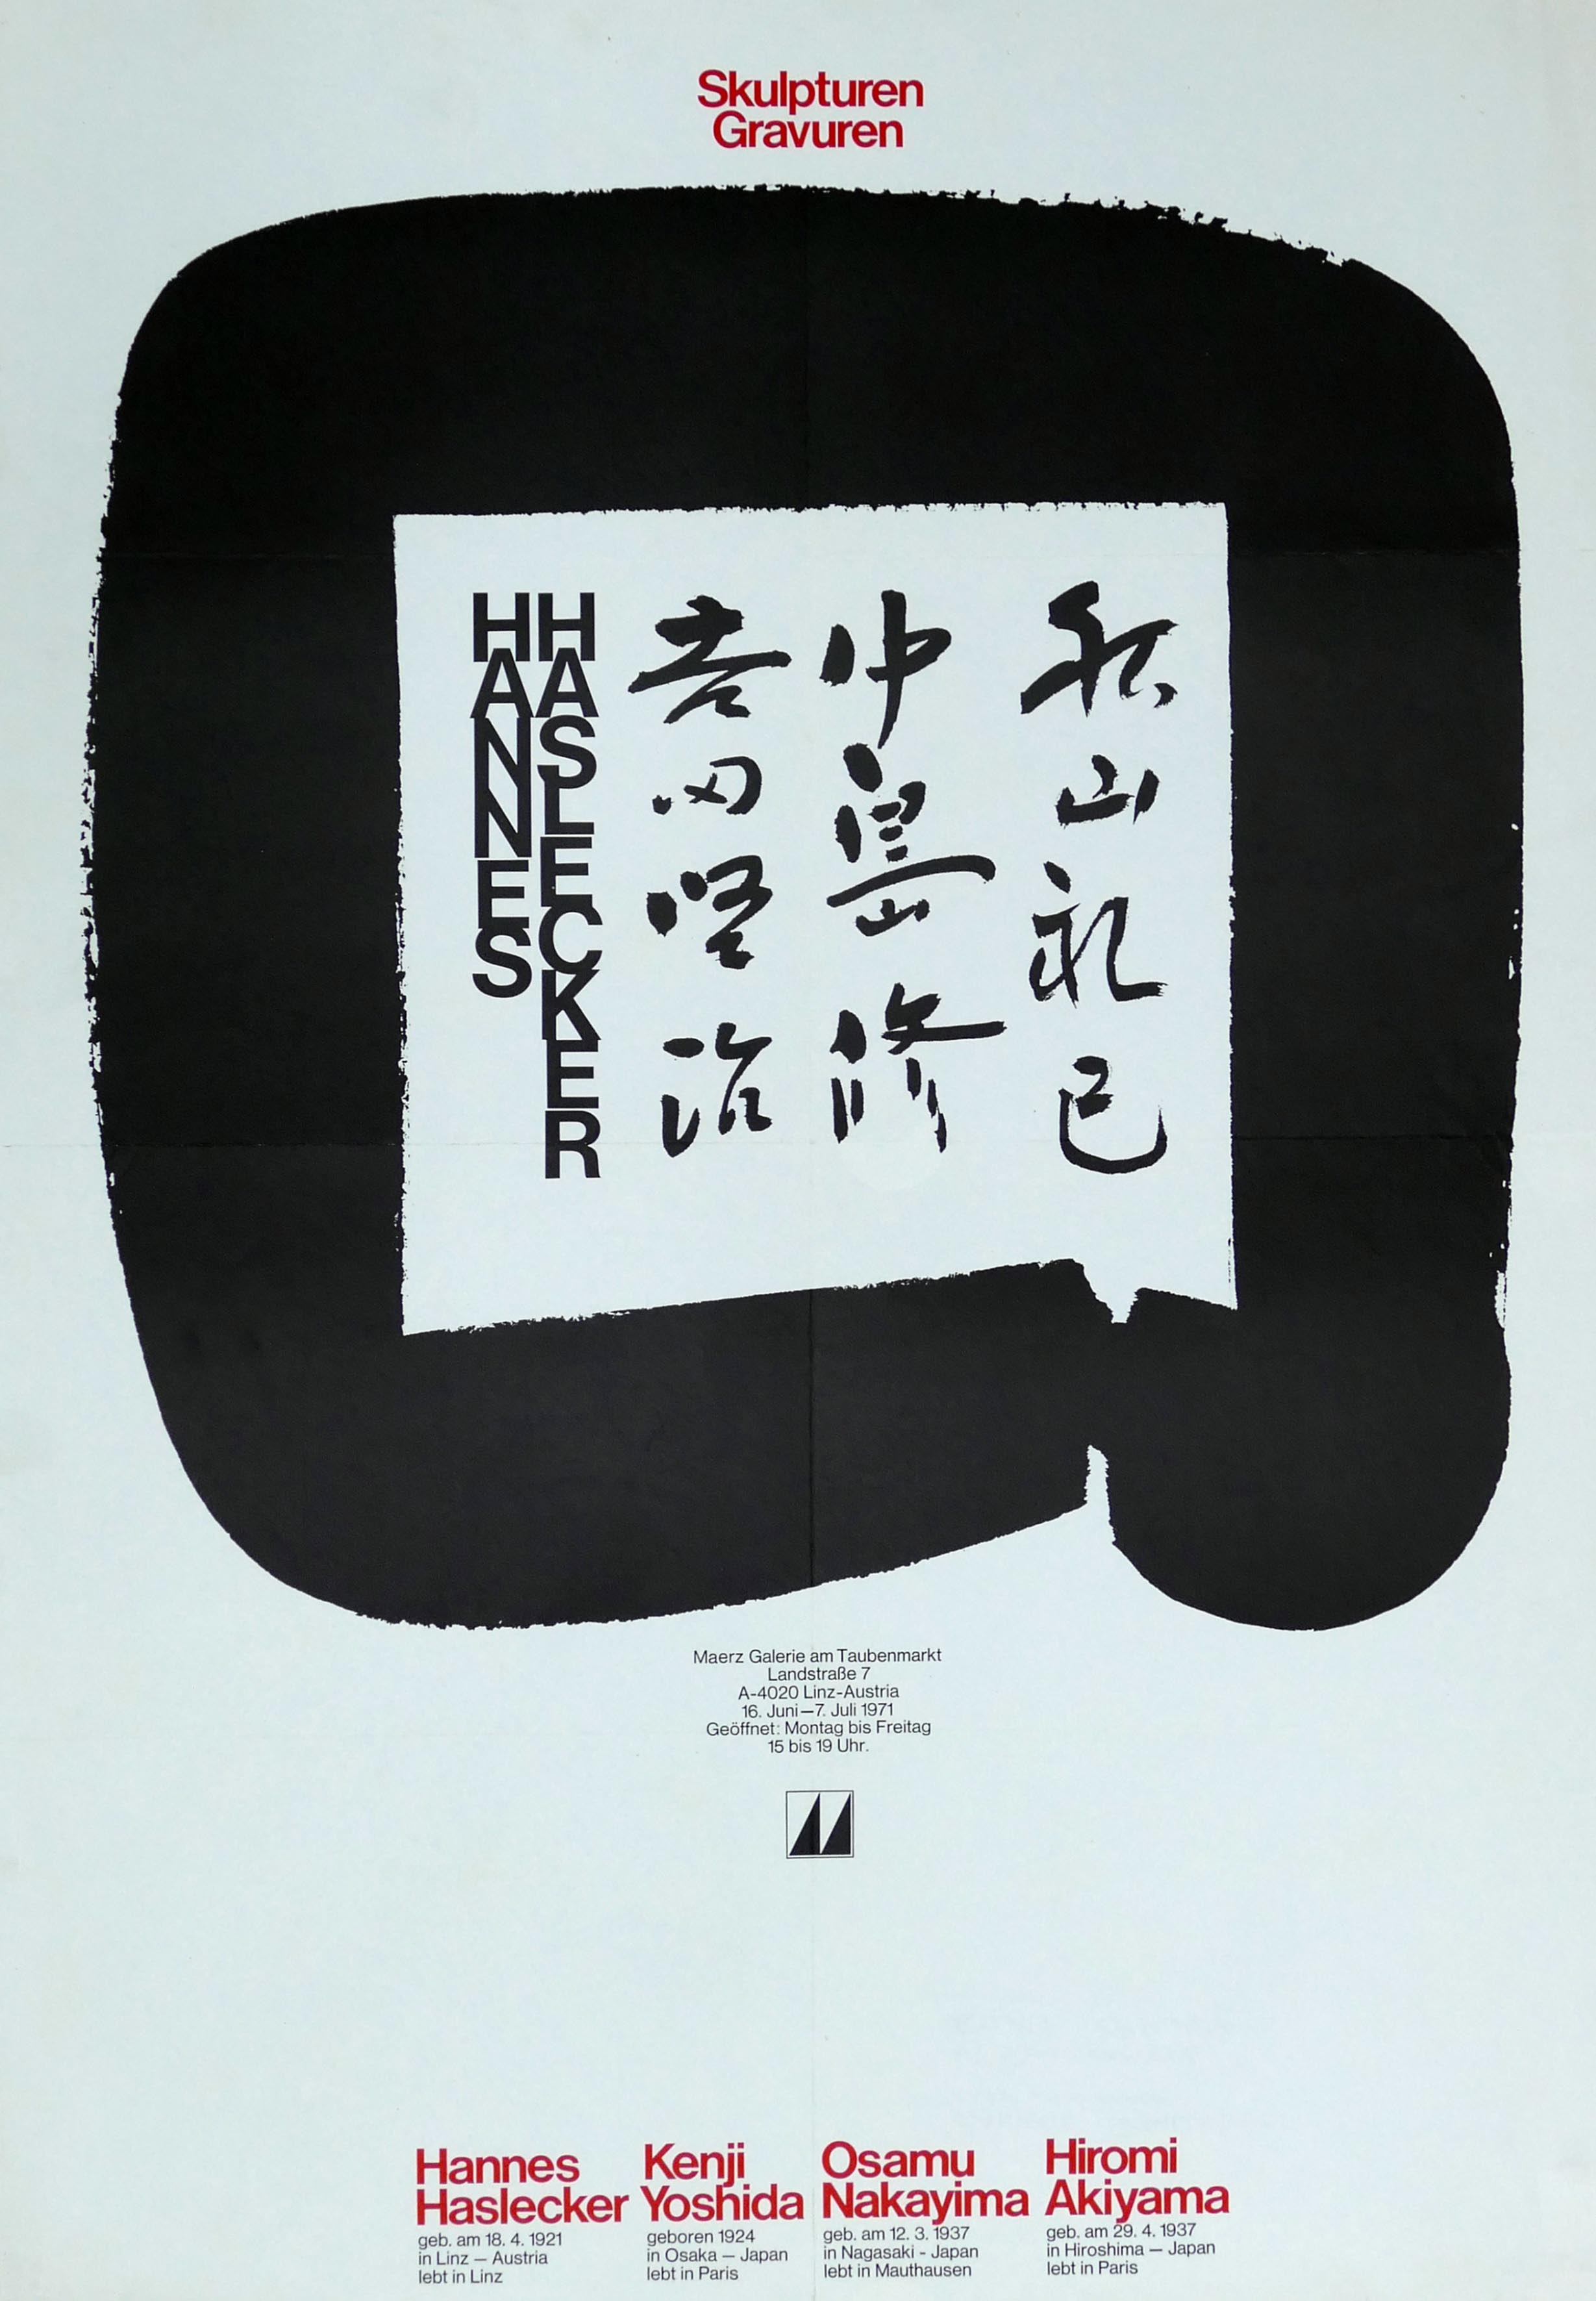 Skulpturen
Gravuren
HANNES
HASLECKER
吉田堅治
中島修
秋山礼巳
Maerz Galerie am Taubenmarkt
Landstraße 7
A-4020 Linz-Austria
16. Juni—7. Juli 1971
Geöffnet: Montag bis Freitag
15 bis 19 Uhr.
Hannes
Haslecker
geb. am 18. 4. 1921
in Linz — Austria
lebt in Linz
Kenji
Yoshida
geboren 1924
in Osaka — Japan
lebt in Paris
Osamu
Nakayima
geb. am 12. 3. 1937
in Nagasaki - Japan
lebt in Mauthausen
Hiromi
Akiyama
geb. am 29. 4. 1937
in Hiroshima — Japan
lebt in Paris